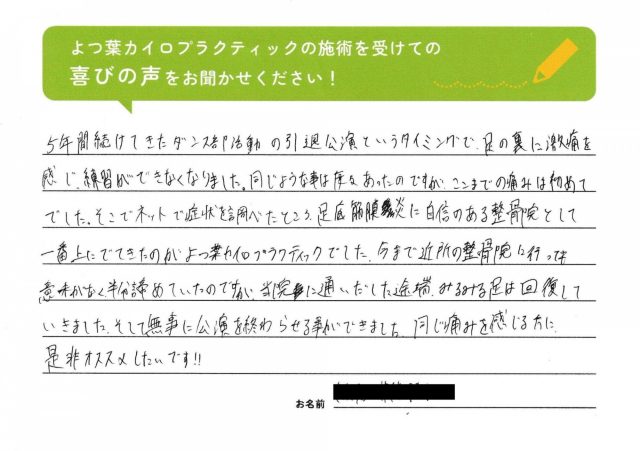 よつ葉カイロプラクティックの施術を受けての
喜びの声をお聞かせください！
5年間続けてきたダンス部活動の引退公演というタイミングで、足の裏に激痛を
感じ、練習ができなくなりました。同じような事は度々あったのですが、ここまでの痛みは初めて
でした。そこでネットで症状を調べたところ、足底筋膜炎に自信のある整骨院として
一番上にでてきたのがよつ葉カイロプラクティックでした。今まで近所の整骨院に行っても
意味がなく半分諦めていたのですが、当院に通いだした途端、みるみる足は回復して
いきました。そして無事に公演を終わらせる事ができました。同じ痛みを感じる方に、
是非オススメしたいです!!
お名前